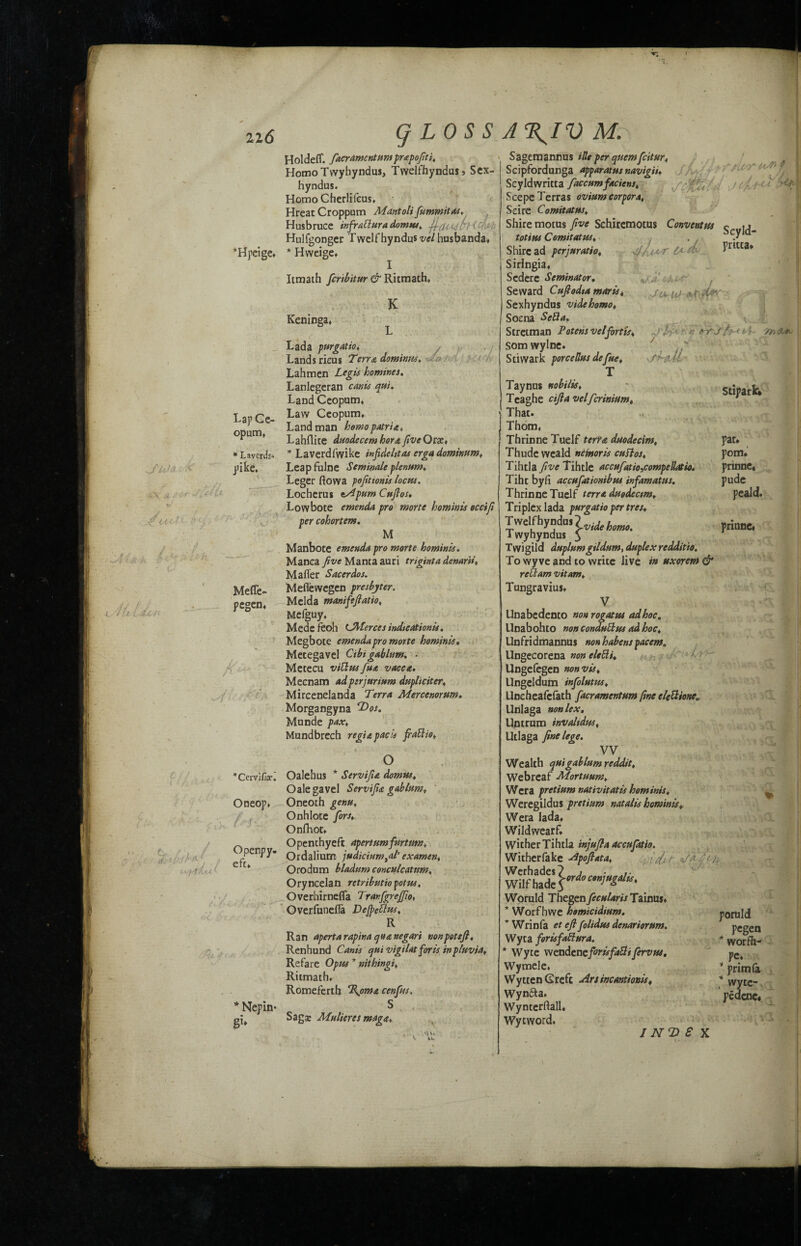 226
GLOSSARIUM.
Holdeff. sacramentum præpositi,
Homo Twyhyndus, Twelfhyndus, Sex-
hyndus.
Homo Cherliscus.
Hreat Croppum Mantoli summitas.
Husbruce infractura domus.
Hulfgonger Twelfhyndus vel husbanda,
*Hpeige. * Hweige.
I
Itmath scribitur & Ritmath.
K
Keninga,
L
Lada purgatio.
Lands ricus Terræ dominus.
Lahmen Legis homines.
Lanlegeran canis qui.
Land Ceopum,
Lap Ce-
opum, Law Ceopum,
Land man homo patriæ,
Lahslite duodecem horæ sive Oræ,
* Laverds-
pike. * Laverdswike infidelitas erga dominum,
Leap fulne Seminale plenum,
Leger stowa positionis locus.
Locherus Apum Custos.
Lowbote emenda pro morte hominis occisi
per cohortem.
M
Manbote emenda pro morte hominis.
Manca sive Manta auri triginta denarii,
Masser Sacerdos.
Messe-
pegen. Messewegen presbyter.
Melda manifestatio,
Melguy.
Mede feoh Merces indicationis.
Megbote emenda pro morte hominis.
Metegavel Cibi gablum.
Metecu victus suæ vaccæ.
Meenam ad perjurium dupliciter.
Mircenelanda Terra Mercenorum.
Morgangyna Dos.
Munde pax,
Mundbrech regiæ pacis fractio.
O
*Cervisiæ. Oalehus * Servisiæ domus.
Oale gavel Servisiæ gablum,
Oneop. Oneoth genu,
Onhlote sors.
Onshot.
Openpy-
eft. Openthyeft apertum furtum,
Ordalium judicium, al' examen,
Orodum bladum conculcatum,
Oryncelan retributio potus,
Overhirnessa Transgressio,
Oversunessa Despectus,
R
Ran aperta rapina quæ negari non potest.
Renhund Canis qui vigilat foris in pluvia,
Refare Opus * nithingi,
Ritmath.
Romeferth Roma census.
* Nepin-
gi. S
Sagæ Mulieres magæ.
Sagemannus ille per quem scitur,
Scipfordunga apparatus navigii.
Scyldwritta saccum faciens,
Scepe Terras ovium corpora,
Scire Comitatus,
Shire motus sive Schiremotus Conventus
totius Comitatus. Scyld-
pritta.
Shire ad perjuratio,
Siringia,
Sedere Seminator.
Seward Custodia maris,
Sexhyndus vide homo.
Socna Secta.
Stretman Potens vel fortis.
som wylne.
Stiwark porcellus de sue,
T
Taynus nobilis, Stipark.
Teaghe cista vel scrinium,
That.
Thom,
Thrinne Tuelf terræ duodecim, pat.
Thude weald nemoris custos, pom.
Tihtla sive Tihtle accusatio, compellatio. prinne,
Tiht bysi accusationibus infamatus. pude
Thrinne Tuelf terræ duodecim, peald.
Triplex lada purgatio per tres.
Twelfhyndus } vide homo.
Twyhyndus prinne,
Twigild duplum gildum, duplex redditio.
To wyve and to write live in uxorem &
rectam vitam,
Tungravius,
V
Unabedento non rogatus ad hoc,
Unabohto non conductus ad hoc,
Unfridmannus non habens pacem,
Ungecorena non electi,
Ungesegen non vis,
Ungeldum insolutus,
Unchealesath sacramentum sine electione.
Unlaga non lex,
Untrum invalidus,
Utlaga sine lege.
VV
Wealth qui gablum reddit,
Webreaf Mortuum,
Wera pretium nativitatis hominis,
Weregildus pretium natalis hominis,
Wera lada.
Wildwearf.
Wither Tihtla injusta accusatio.
Withersake Apostata,
Werhades } ordo conjugalis.
Wilf hade
Woruld Thegen secularis Tainus.
* Worfhwe homicidium. poruld
pegen
* Wrinsa et est solidus denariorum. * worsh-
pe.
Wyta forisfactura.
* Wyte wendene forisfacti servus. * primsa
Wymele. * wyte-
pedene.
Wytten Creft Ars incantionis,
Wyncta.
Wynterstall.
Wytword.
INDEX